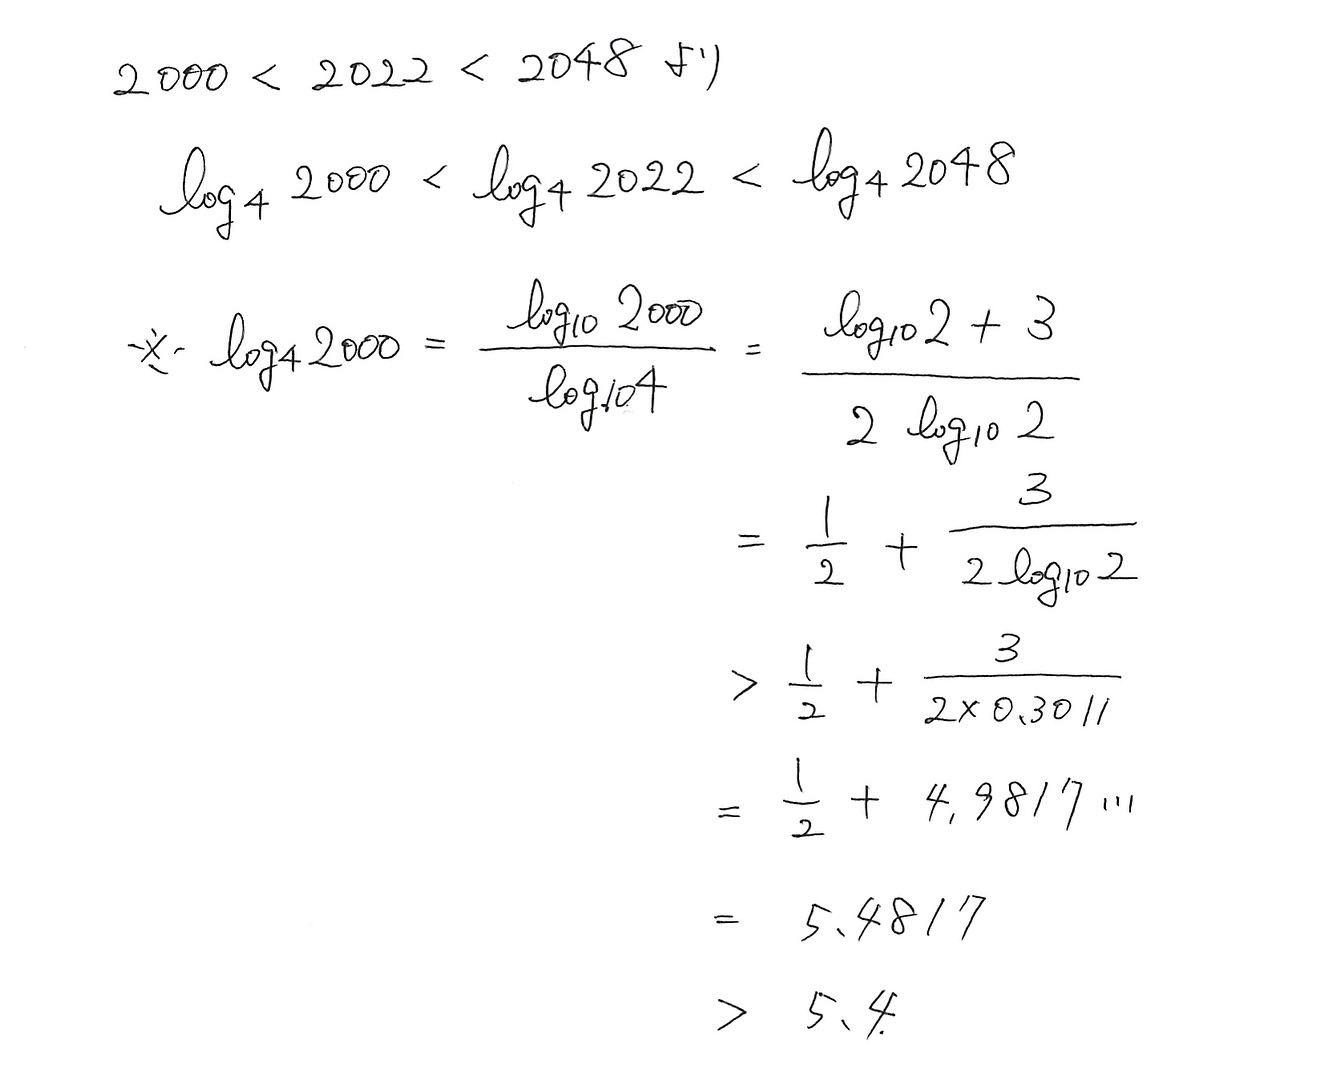 2000 < 2022 < 2048 より
log₄ 2000 < log₄ 2022 < log₄ 2048
※ log₄ 2000 = log₁₀ 2000 / log₁₀ 4 = (log₁₀ 2 + 3) / (2 log₁₀ 2)
= 1/2 + 3 / (2 log₁₀ 2)
> 1/2 + 3 / (2×0.3011)
= 1/2 + 4.9817…
= 5.4817
> 5.4